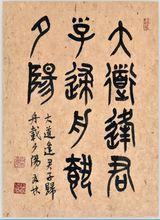 大道逢君
子歸舟載
夕陽
大道逢君子歸
舟載夕陽